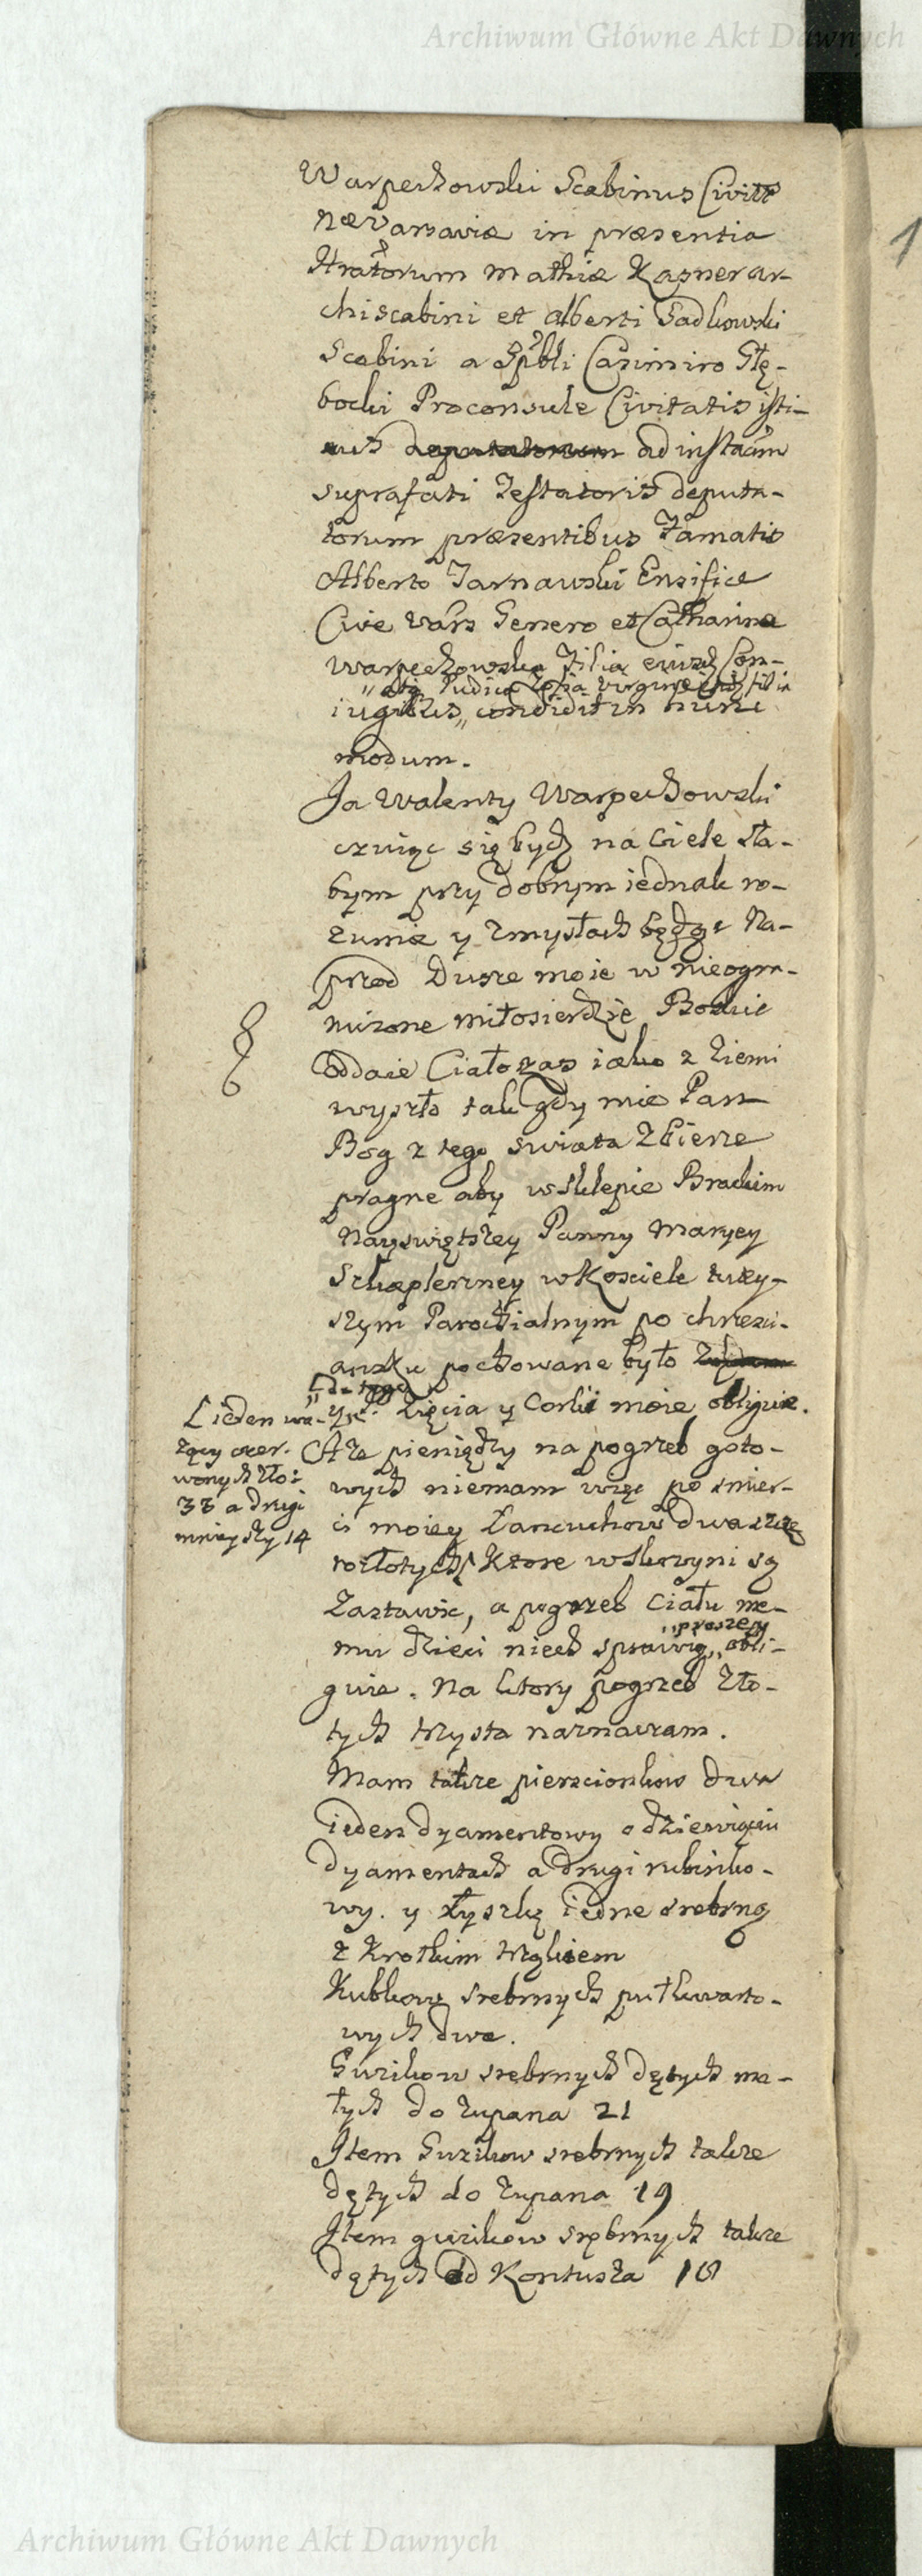 Archiwum Główne Akt Dawnych
Warpechowski Scabinus Civitt
næ Varsaviæ in præsentia
Hratorum Mathiæ Kasner ar-
chiscabini et Alberti Sadkowski
Scabini a Spbli Casimiro Głę-
bocki Proconsule Civitatis isti-
ad instaām
suprafati Testatoris deputa-
torum præsentibus Famatis
Alberto Tarnawski Ensifice
Cive Vars Genero et Catharina
Warpechowska Filia eiusd Con-
Zofia Virgine filia
iugibus,, condidit in hunc
modum.
Ja Walenty Warpechowski
czuiąc się bydz na Ciele sła-
bym przy dobrym iednak ro-
zumie y zmysłach będąc Na-
przod Dusze moie w nieogra-
niczone miłosierdzie Boskie
oddaie Ciało zas iako z ziemi
wyszło tak gdy mie Pan
Bog z tego swiata zbierze
pragne aby w sklepie Brackim
Nayswiętszey Panny Maryey
Szkaplerzney w Kosciele tutey-
szym Parochialnym po chrzesci-
ansku pochowane było
Zięcia y Corki moie obliguie.
Ale pieniędzy na pogrzeb goto-
wych niemam więc po smier-
ci moiey Łancuchow dwa szcze
rozłotych ktore w skrzyni są
Zastawic, a pogrzeb Ciału me-
,,proszę y
mu dzieci niech sprawią,, obli-
guie. Na ktory pogrzeb zło-
tych trzysta naznaczam.
Mam takze pierscionkow dwa
ieden dyamentowy o dziewięciu
dyamentach a drugi rubinko-
wy. y łyszkę iedne srebrną
z krotkim
Kubkow srebrnych puł kwarto-
wych dwa.
Guzikow srebrnych dętych ma-
łych do zupana 21
Item Guzikow srebrnych takze
dętych do zupana 19
Item guzikow srebrnych takze
dętych od Kontusza 18
ieden wa-
zący czer-
wonych zło:
38 a drugi
mnieyszy 14
1
Archiwum Główne Akt Dawnych